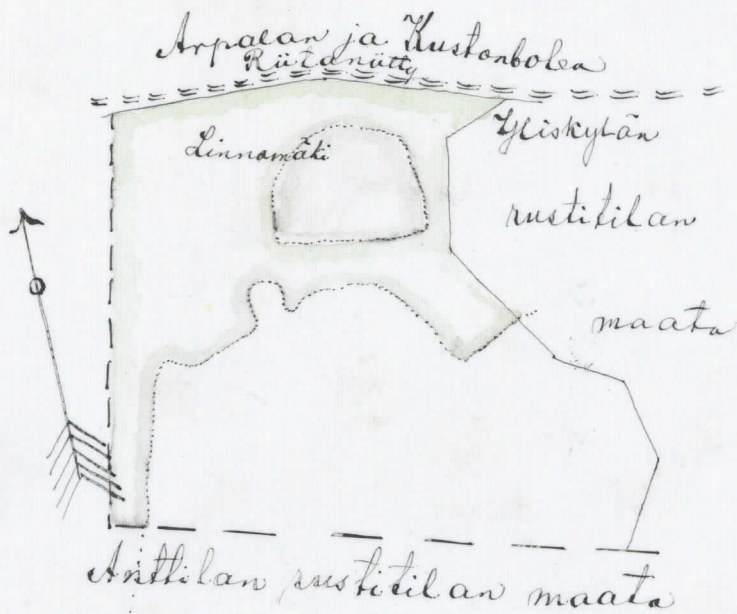 Arpalan ja Kustonbolea
Riitaniitty
Linnamäki
Yliskylän
rustitilan
maata
Anttilan rustitilan maata